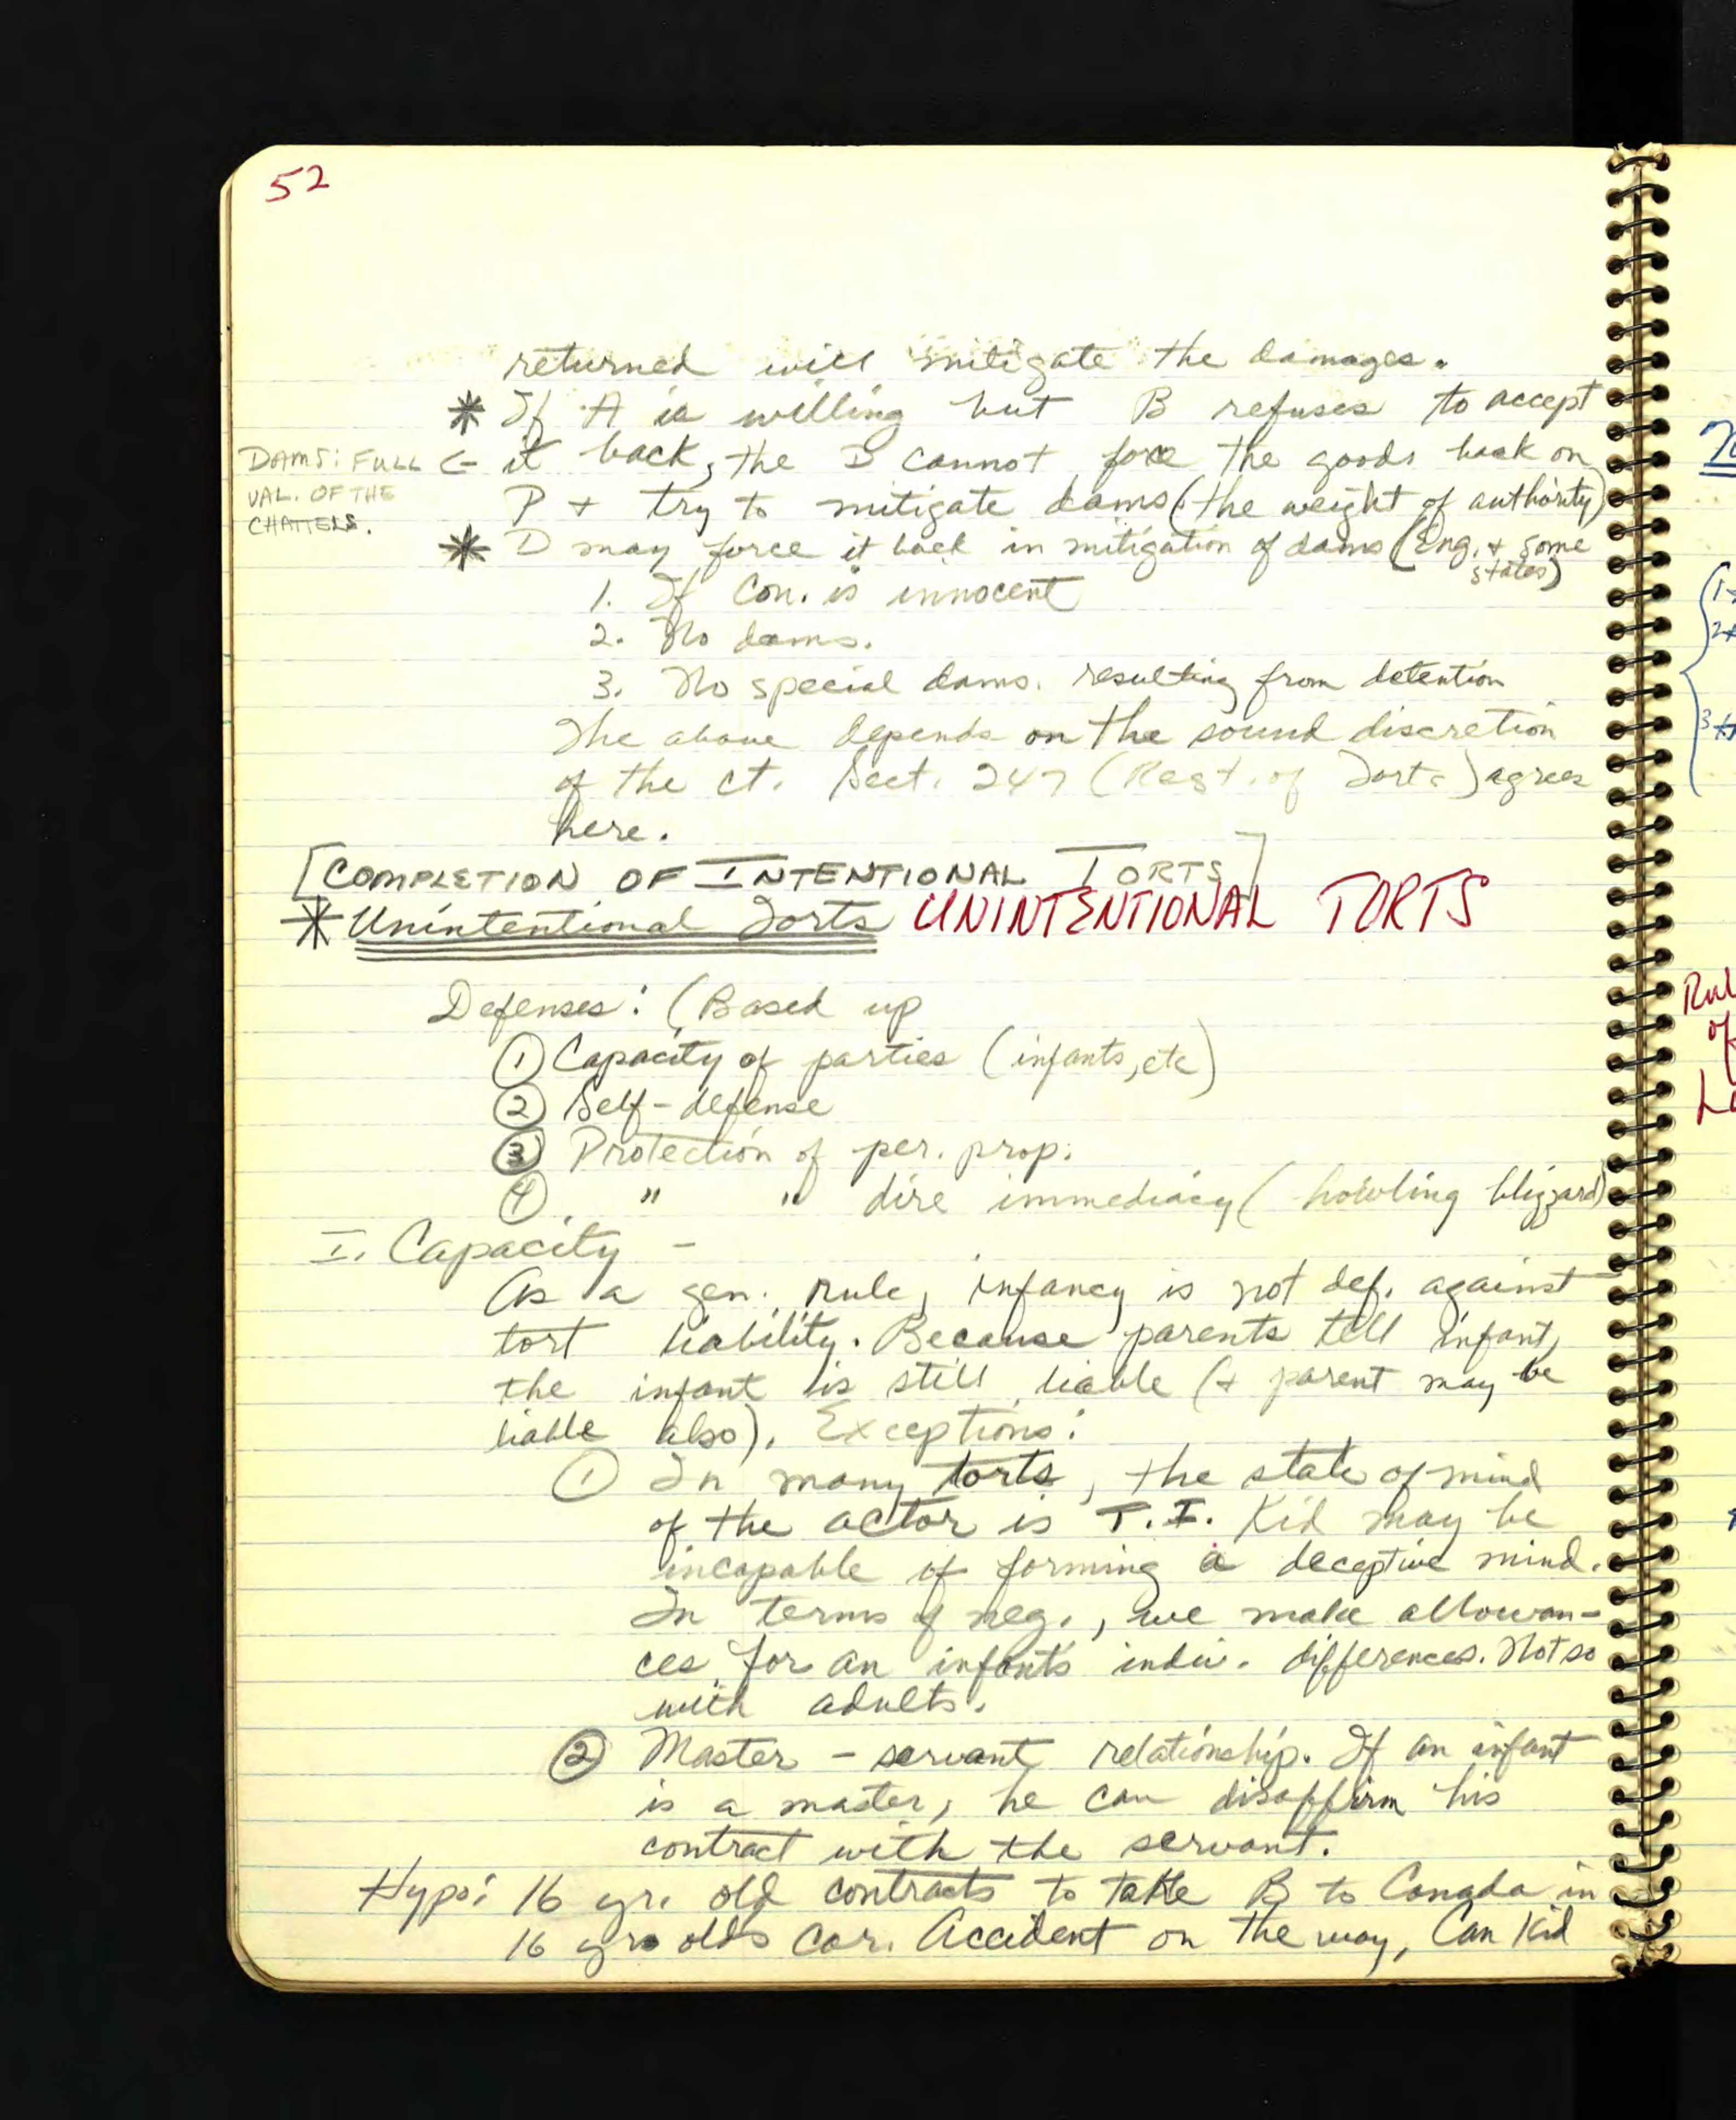 52
returned will mitigate the damages.
* If A is willing but B refuses to accept
DAMS: FULL <- it back, the D cannot force the goods back on
VAL. OF THE
CHATTELS.
P + try to mitigate dams (the weight of authority)
* D may force it back in mitigation of dams (Eng. + some
states)
1. If Con. is innocent
2. No dams.
3. No special dams. resulting from detention
The above depends on the sound discretion
of the ct. Sect. 247 (Rest. of Torts) agrees
here.
[COMPLETION OF INTENTIONAL TORTS]
* Unintentional Torts UNINTENTIONAL TORTS
Defenses: (Based up
① Capacity of parties (infants, etc)
② Self-defense
③ Protection of per. prop.
④ " " dire immediacy (howling blizzard)
I. Capacity -
As a gen. rule, infancy is not def. against
tort liability. Because parents tell infant,
the infant is still liable (+ parent may be
liable also). Exceptions:
① In many torts, the state of mind
of the actor is T.I. Kid may be
incapable of forming a deceptive mind.
In terms of neg., we make allowan-
ces for an infants indiv. differences. Not so
with adults.
② Master - servant relationship. If an infant
is a master, he can disaffirm his
contract with the servant.
Hypo: 16 yr. old contracts to take B to Canada in
16 yr olds car. Accident on the way, Can Kid